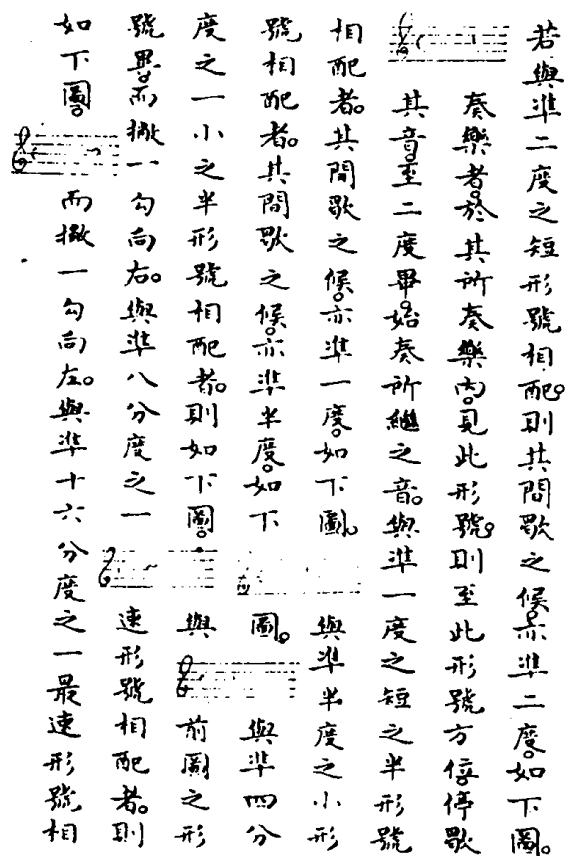 若與準二度之短形號相配。則其間歇之候。亦準二度。如下圖。
奏樂者。於其所奏樂內。見此形號。則至此形號方位。停歇
其音。至二度畢。始奏所繼之音。與準一度之短之半形號
相配者。其間歇之候。亦準一度。如下圖。與準半度之小形
號相配者。其間歇之候。亦準半度。如下圖。與準四分
度之一小之半形號相配者。則如下圖。與前圖之形
號異。而撇一勾向右。與準八分度之一速形號相配者。則
如下圖。而撇一勾向左。與準十六分度之一最速形號相